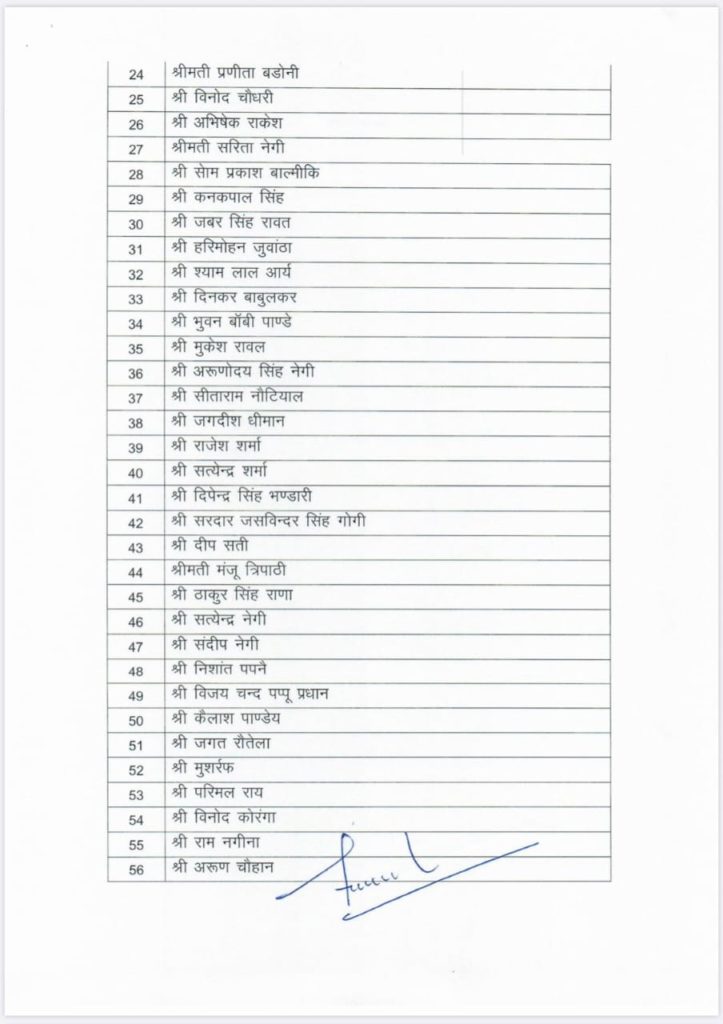 24 श्रीमती प्रणीता बडोनी
25 श्री विनोद चौधरी
26 श्री अभिषेक राकेश
27 श्रीमती सरिता नेगी
28 श्री सेाम प्रकाश बाल्मीकि
29 श्री कनकपाल सिंह
30 श्री जबर सिंह रावत
31 श्री हरिमोहन जुवांठा
32 श्री श्याम लाल आर्य
33 श्री दिनकर बाबुलकर
34 श्री भुवन बॉबी पाण्डे
35 श्री मुकेश रावल
36 श्री अरूणोदय सिंह नेगी
37 श्री सीताराम नौटियाल
38 श्री जगदीश धीमान
39 श्री राजेश शर्मा
40 श्री सत्येन्द्र शर्मा
41 श्री दिपेन्द्र सिंह भण्डारी
42 श्री सरदार जसविन्दर सिंह गोगी
43 श्री दीप सती
44 श्रीमती मंजू त्रिपाठी
45 श्री ठाकुर सिंह राणा
46 श्री सत्येन्द्र नेगी
47 श्री संदीप नेगी
48 श्री निशांत पपनै
49 श्री विजय चन्द पप्पू प्रधान
50 श्री कैलाश पाण्डेय
51 श्री जगत रौतेला
52 श्री मुशर्रफ
53 श्री परिमल राय
54 श्री विनोद कोरंगा
55 श्री राम नगीना
56 श्री अरूण चौहान